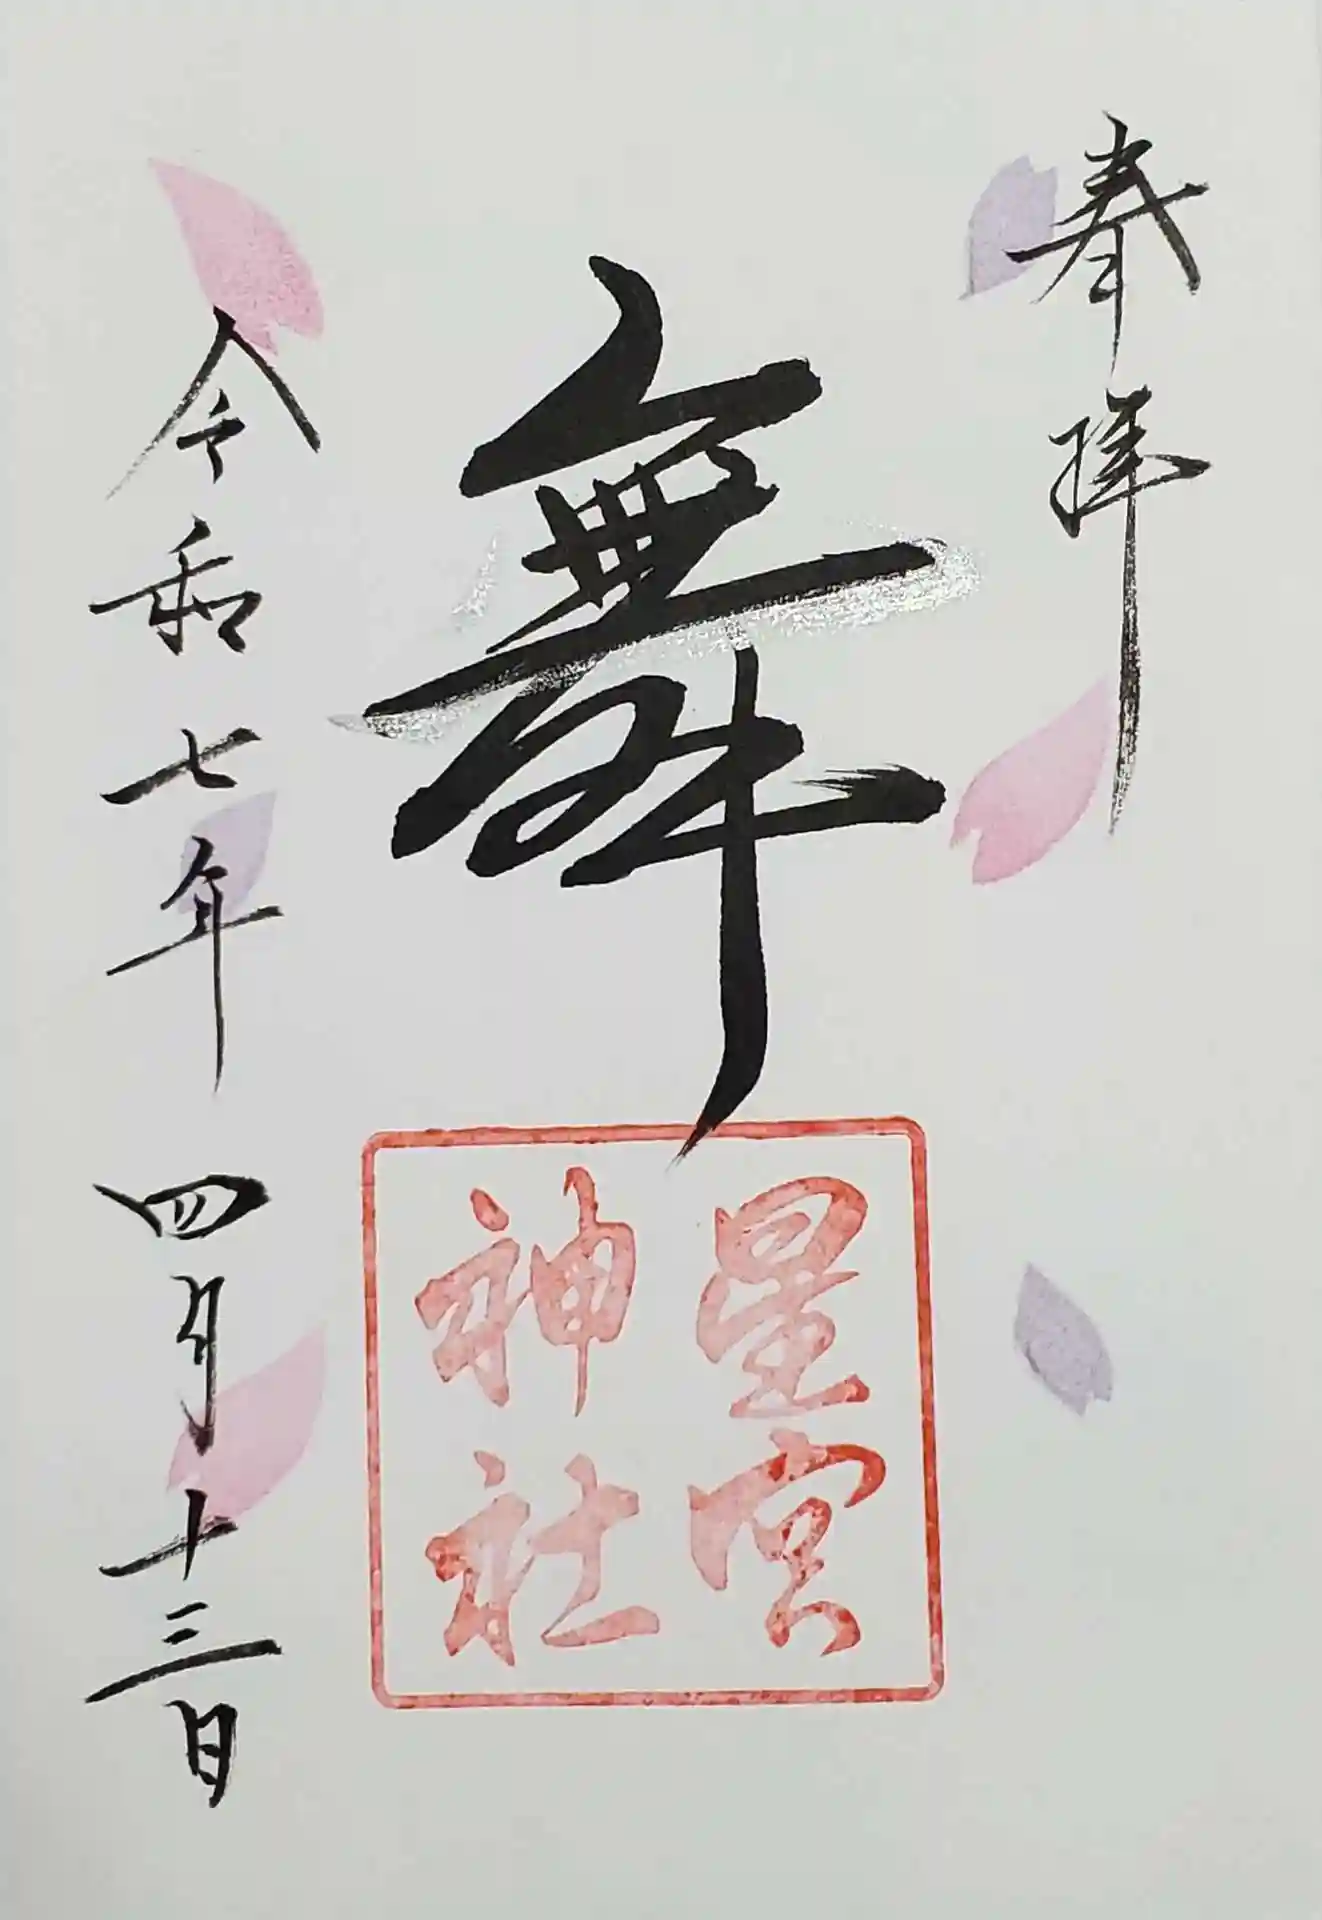 奉拝
舞
星宮
神社
令和七年四月十三日